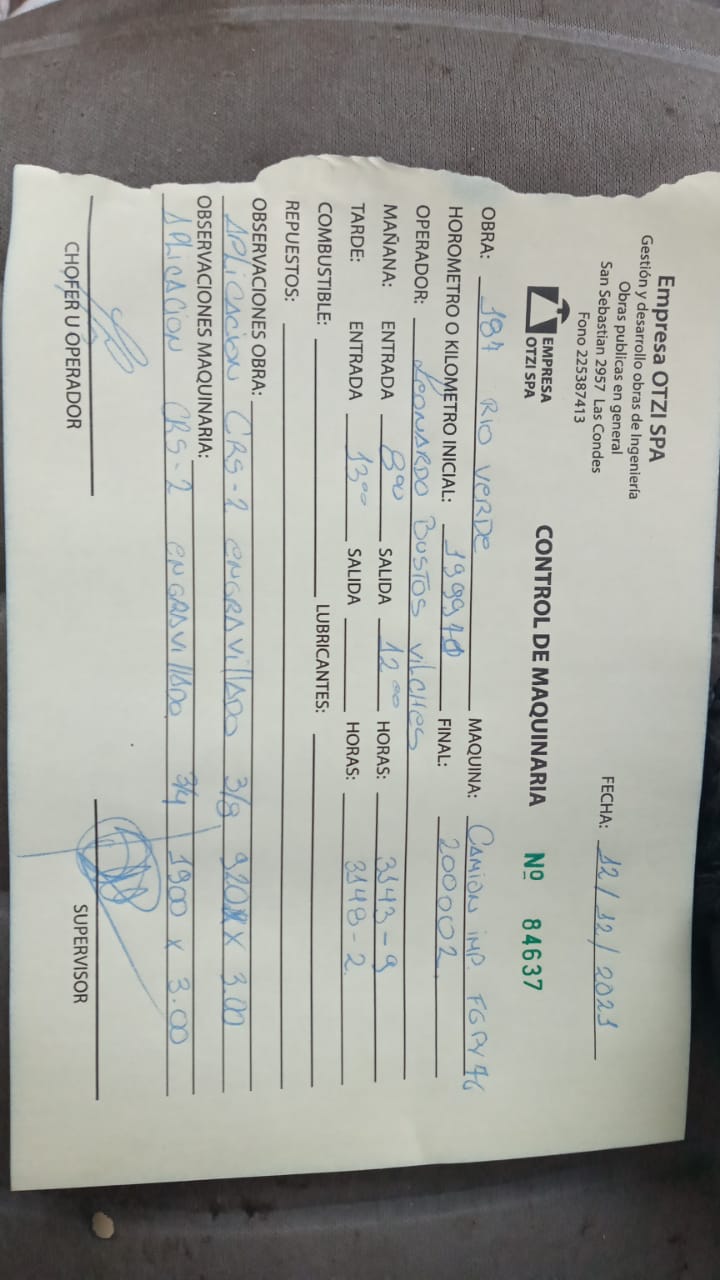 Empresa OTZI SPA
Gestión y desarrollo obras de Ingeniería
Obras publicas en general
San Sebastian 2957 Las Condes
Fono 225387413
FECHA: 12/12/2021
EMPRESA
OTZI SPA
CONTROL DE MAQUINARIA Nº 84637
OBRA: 187 RIO VERDE MAQUINA: CAMION IMP.
HOROMETRO O KILOMETRO INICIAL: FINAL: 200002
OPERADOR: LEONARDO BUSTOS VILCHES
MAÑANA: ENTRADA 8 00 SALIDA 12 00 HORAS: 3143-9
TARDE: ENTRADA 13 00 SALIDA HORAS: 3148-2
COMBUSTIBLE: LUBRICANTES:
REPUESTOS:
OBSERVACIONES OBRA:
APLICACION CRS-2 ENGRAVILLADO 3/8 x 3.00
OBSERVACIONES MAQUINARIA:
APLICACION CRS-2 ENGRAVILLADO 3/4 1900 x 3.00
CHOFER U OPERADOR
SUPERVISOR